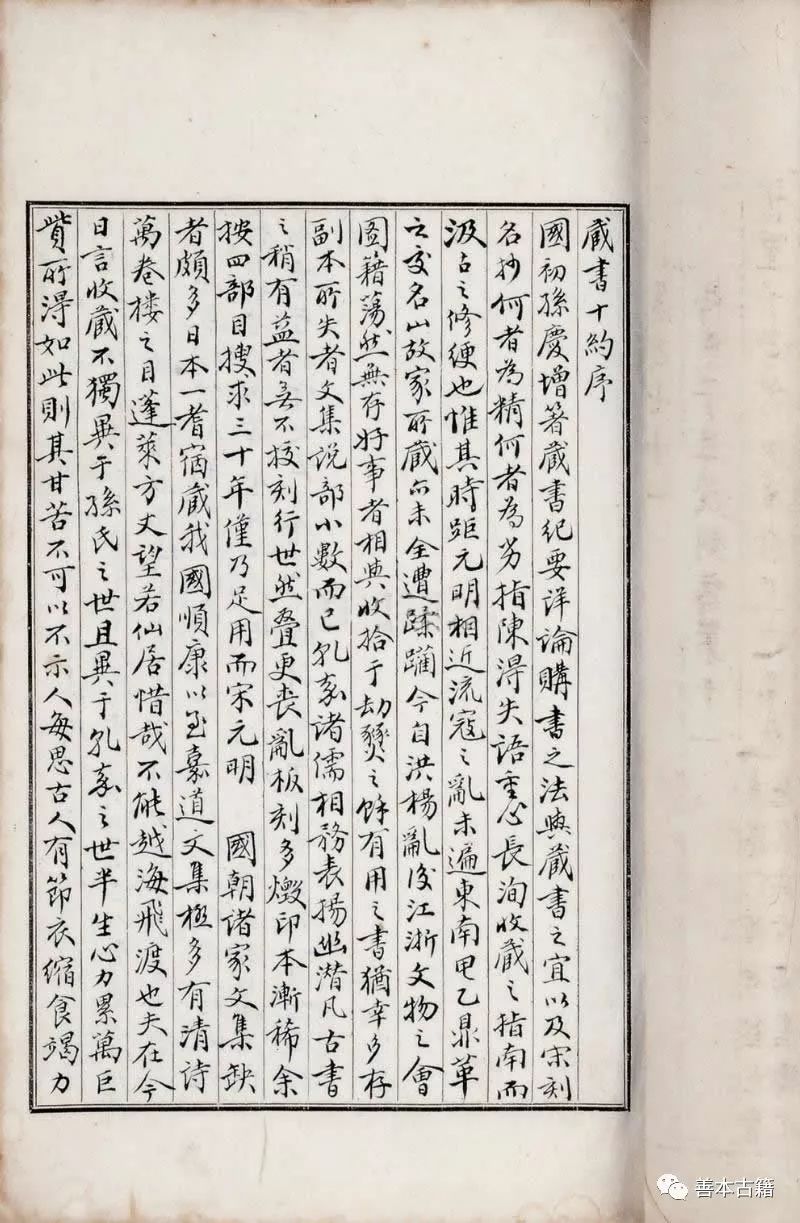 藏書十約序
國初孫慶增著藏書紀要詳論購書之法與藏書之宜以及宋刻
名抄何者為精何者為劣指陳得失語重心長洵收藏之指南而
汲古之修綆也惟其時距元明相近流寇之亂未遍東南甲乙鼎革
之交名山故家所藏亦未全遭蹂躪今自洪楊亂後江浙文物之會
圖籍蕩然無存好事者相與收拾于劫燹之餘有用之書猶幸多存
副本所失者文集說部小數而已乾嘉諸儒相務表揚幽潛凡古書
之稍有益者無不校刻行世然疊更喪亂板刻多燬印本漸稀余
按四部目搜求三十年僅乃足用而宋元明 國朝諸家文集缺
者頗多日本一耆宿藏我國順康以至嘉道文集極多有清詩
萬卷樓之目蓬萊方丈望若仙居惜哉不能越海飛渡也夫在今
日言收藏不獨異于孫氏之世且異于乾嘉之世半生心力累萬巨
貲所得如此則其甘苦不可以不示人每思古人有節衣縮食竭力
善本古籍